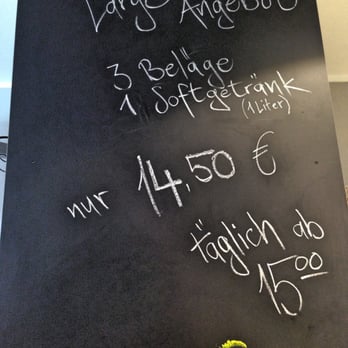 Large Angebot
3 Beläge
1 Softgetränk
(1 Liter)
nur 14,50 €
täglich ab
15⁰⁰